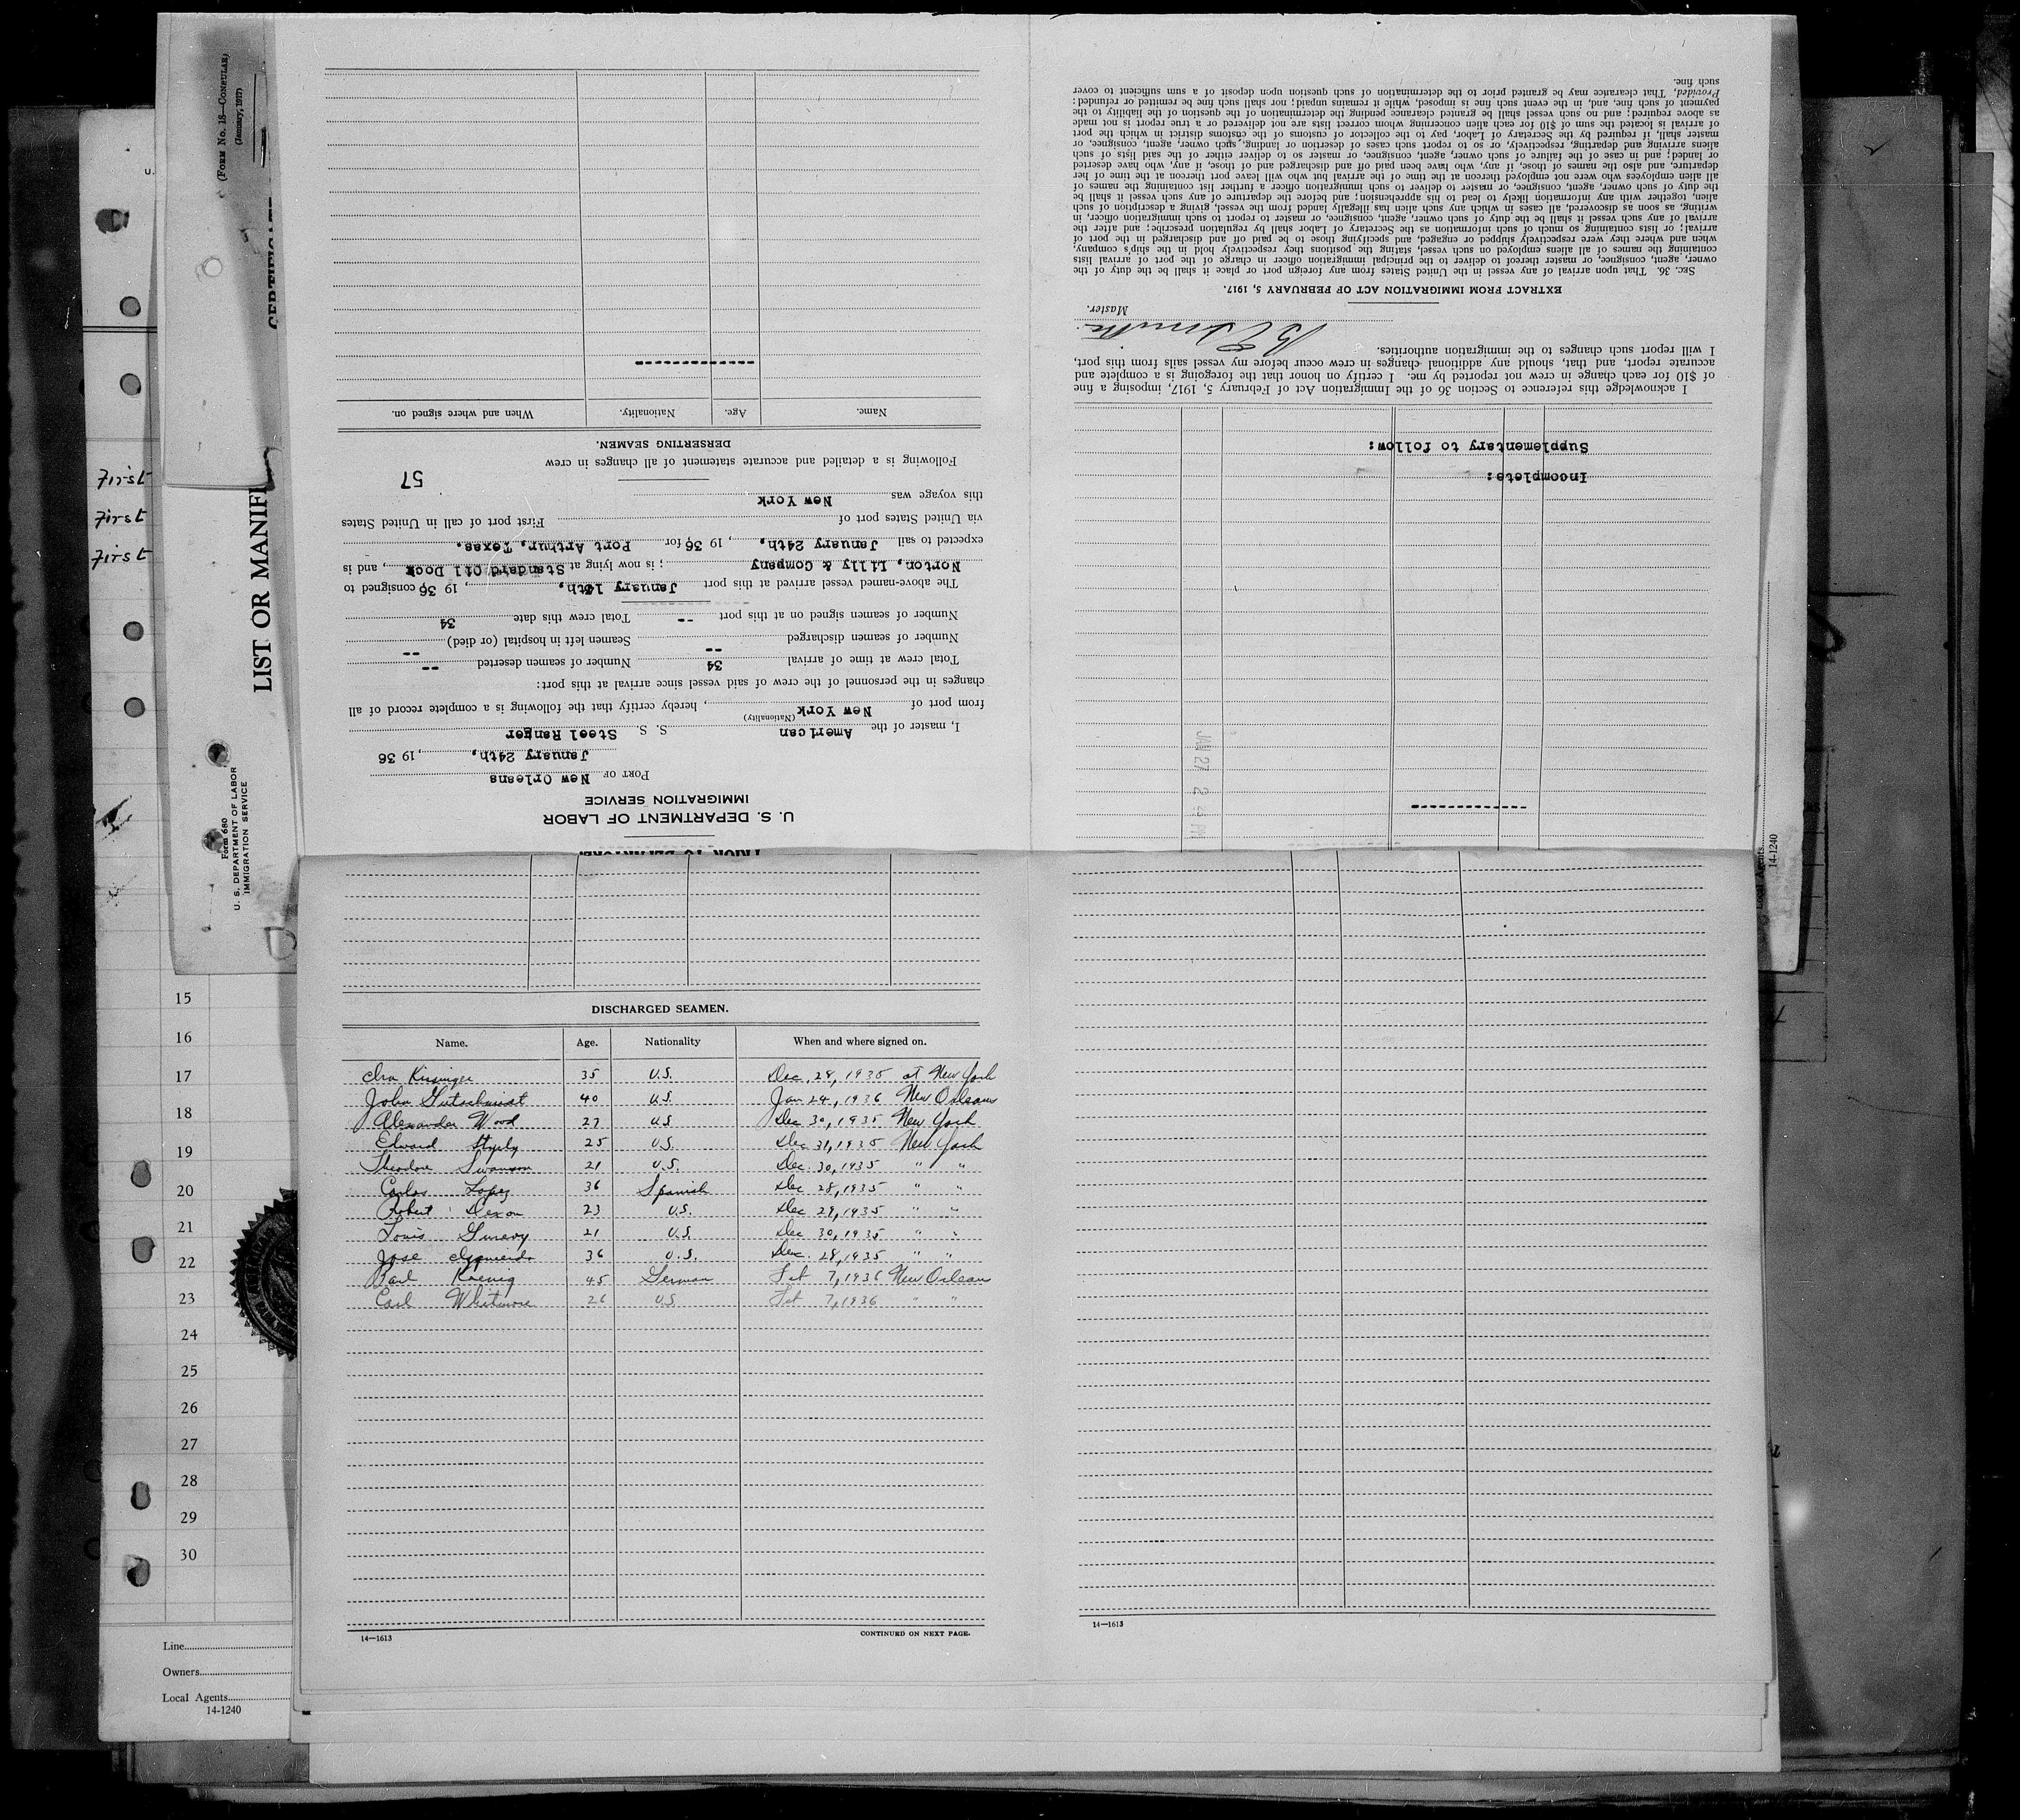 (FORM No. 18—CONSULAR)
(January, 1917)
First
First
First
LIST OR MANIFE
Form 680
U. S. DEPARTMENT OF LABOR
IMMIGRATION SERVICE
U. S. DEPARTMENT OF LABOR
IMMIGRATION SERVICE
PORT OF New Orleans
January 24th, , 19 36
I, master of the American S. S. Steel Ranger
(Nationality)
from port of New York , hereby certify that the following is a complete record of all
changes in the personnel of the crew of said vessel since arrival at this port:
Total crew at time of arrival 34 Number of seamen deserted --
Number of seamen discharged -- Seamen left in hospital (or died) --
Number of seamen signed on at this port -- Total crew this date 34
The above-named vessel arrived at this port January , 19 36 consigned to
Norton, Lilly & Company ; is now lying at Standard Oil Dock , and is
expected to sail January 24th, , 19 36 for Port Arthur, Texas.
via United States port of First port of call in United States
this voyage was New York
57
Following is a detailed and accurate statement of all changes in crew
DERSERTING SEAMEN.
Name. Age. Nationality. When and where signed on.
Incomplete:
Supplementary to follow:
JAN 27 2
I acknowledge this reference to Section 36 of the Immigration Act of February 5, 1917, imposing a fine
of $10 for each change in crew not reported by me. I certify on honor that the foregoing is a complete and
accurate report, and that, should any additional changes in crew occur before my vessel sails from this port,
I will report such changes to the immigration authorities.
Master.
EXTRACT FROM IMMIGRATION ACT OF FEBRUARY 5, 1917.
SEC. 36. That upon arrival of any vessel in the United States from any foreign port or place it shall be the duty of the
owner, agent, consignee, or master thereof to deliver to the principal immigration officer in charge of the port of arrival lists
containing the names of all aliens employed on such vessel, stating the positions they respectively hold in the ship's company,
when and where they were respectively shipped or engaged, and specifying those to be paid off and discharged in the port of
arrival; or lists containing so much of such information as the Secretary of Labor shall by regulation prescribe; and after the
arrival of any such vessel it shall be the duty of such owner, agent, consignee, or master to report to such immigration officer, in
writing, as soon as discovered, all cases in which any such alien has illegally landed from the vessel, giving a description of such
alien, together with any information likely to lead to his apprehension; and before the departure of any such vessel it shall be
the duty of such owner, agent, consignee, or master to deliver to such immigration officer a further list containing the names of
all alien employees who were not employed thereon at the time of the arrival but who will leave port thereon at the time of her
departure, and also the names of those, if any, who have been paid off and discharged and of those, if any, who have deserted
or landed; and in case of the failure of such owner, agent, consignee, or master so to deliver either of the said lists of such
aliens arriving and departing, respectively, or so to report such cases of desertion or landing, such owner, agent, consignee, or
master shall, if required by the Secretary of Labor, pay to the collector of customs of the customs district in which the port
of arrival is located the sum of $10 for each alien concerning whom correct lists are not delivered or a true report is not made
as above required; and no such vessel shall be granted clearance pending the determination of the question of the liability to the
payment of such fine, and, in the event such fine is imposed, while it remains unpaid; nor shall such fine be remitted or refunded:
Provided, That clearance may be granted prior to the determination of such question upon deposit of a sum sufficient to cover
such fine.
Local Agents
14-1240
DISCHARGED SEAMEN.
Name. Age. Nationality When and where signed on.
Ira Kissinger 35 U.S. Dec. 28, 1935 at New York
John 40 U.S. Jan 24, 1936 New Orleans
Alexander Wood 27 U.S Dec 30, 1935 New York
Edward 25 U.S. Dec 31, 1935 New York
Theodore Swanson 21 U.S. Dec. 30, 1935 " "
Carlos Lopez 36 Spanish Dec 28, 1935 " "
Robert Dixon 23 U.S. Dec 29, 1935 " "
Louis 21 U.S. Dec 30, 1935 " "
Jose Izquierdo 36 U.S. Dec. 28, 1935 " "
Koenig 45 German Feb 7, 1936 New Orleans
Earl Whitmore 26 U.S Feb 7, 1936 " "
15
16
17
18
19
20
21
22
23
24
25
26
27
28
29
30
Line
Owners
Local Agents
14-1240
14—1613 CONTINUED ON NEXT PAGE.
14—1613